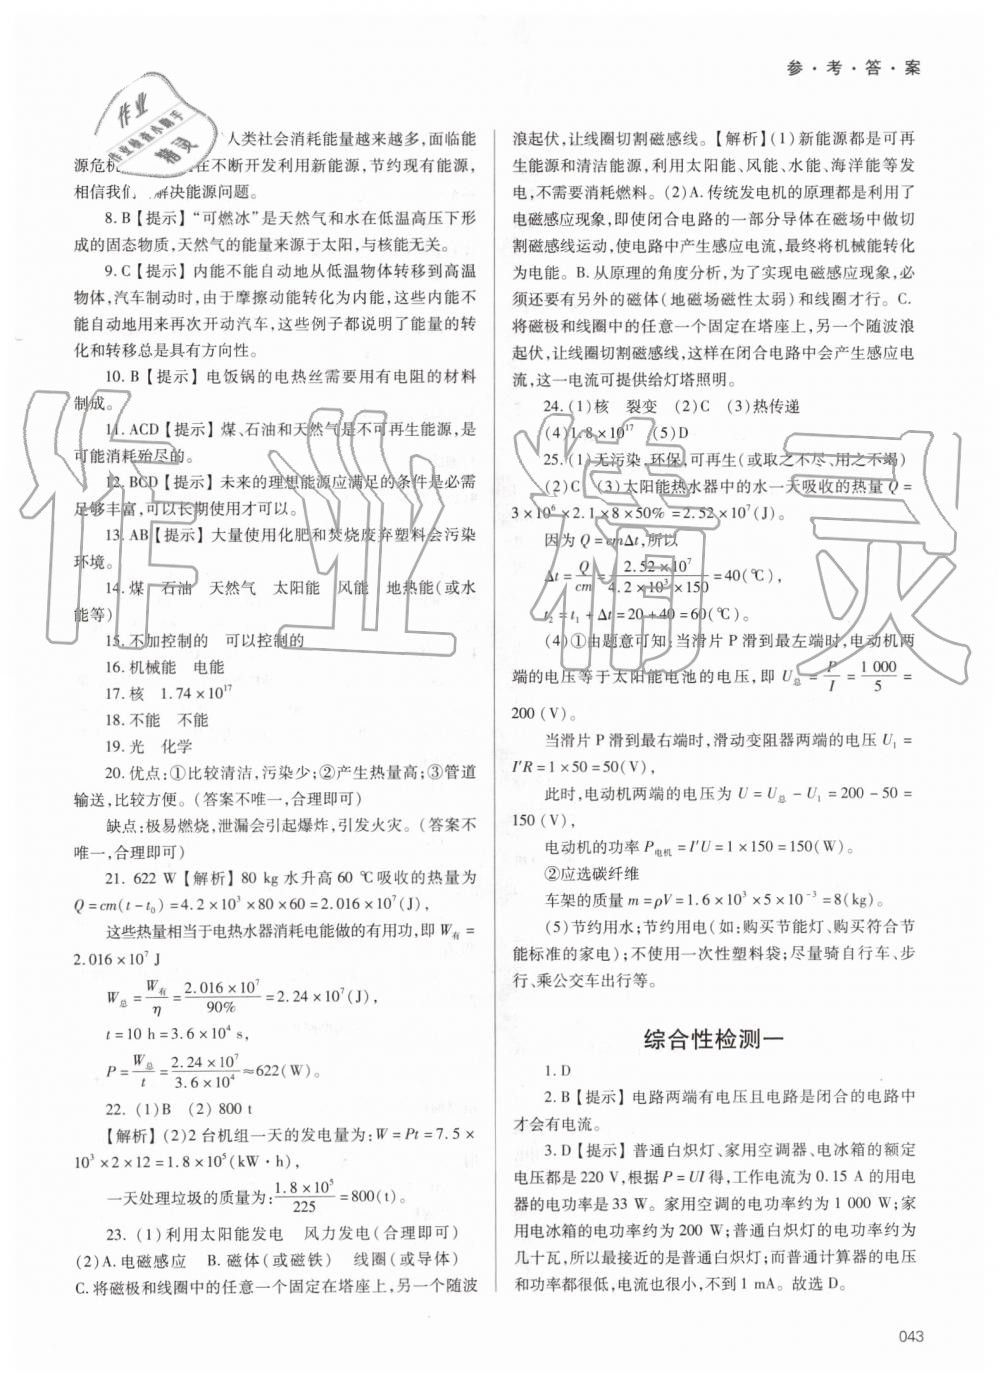 参·考·答·案
人类社会消耗能量越来越多,面临能
源危机 在不断开发利用新能源,节约现有能源,
相信我们 解决能源问题。
8. B【提示】“可燃冰”是天然气和水在低温高压下形
成的固态物质,天然气的能量来源于太阳,与核能无关。
9. C【提示】内能不能自动地从低温物体转移到高温
物体,汽车制动时,由于摩擦动能转化为内能,这些内能不
能自动地用来再次开动汽车,这些例子都说明了能量的转
化和转移总是具有方向性。
10. B【提示】电饭锅的电热丝需要用有电阻的材料
制成。
11. ACD【提示】煤、石油和天然气是不可再生能源,是
可能消耗殆尽的。
12. BCD【提示】未来的理想能源应满足的条件是必需
足够丰富,可以长期使用才可以。
13. AB【提示】大量使用化肥和焚烧废弃塑料会污染
环境。
14. 煤 石油 天然气 太阳能 风能 地热能(或水
能等)
15. 不加控制的 可以控制的
16. 机械能 电能
17. 核 1.74×10¹⁷
18. 不能 不能
19. 光 化学
20. 优点:①比较清洁,污染少;②产生热量高;③管道
输送,比较方便。(答案不唯一,合理即可)
缺点:极易燃烧,泄漏会引起爆炸,引发火灾。(答案不
唯一,合理即可)
21. 622 W【解析】80 kg 水升高 60 ℃吸收的热量为
Q=cm(t-t₀)=4.2×10³×80×60=2.016×10⁷(J),
这些热量相当于电热水器消耗电能做的有用功,即 W有=
2.016×10⁷ J
W总=W有/η=2.016×10⁷/90%=2.24×10⁷(J),
t=10 h=3.6×10⁴ s,
P=W总/t=2.24×10⁷/3.6×10⁴≈622(W)。
22. (1)B (2)800 t
【解析】(2)2 台机组一天的发电量为:W=Pt=7.5×
10³×2×12=1.8×10⁵(kW·h),
一天处理垃圾的质量为:1.8×10⁵/225=800(t)。
23. (1)利用太阳能发电 风力发电(合理即可)
(2)A. 电磁感应 B. 磁体(或磁铁) 线圈(或导体)
C. 将磁极和线圈中的任意一个固定在塔座上,另一个随波
浪起伏,让线圈切割磁感线。【解析】(1)新能源都是可再
生能源和清洁能源,利用太阳能、风能、水能、海洋能等发
电,不需要消耗燃料。(2)A. 传统发电机的原理都是利用了
电磁感应现象,即使闭合电路的一部分导体在磁场中做切
割磁感线运动,使电路中产生感应电流,最终将机械能转化
为电能。B. 从原理的角度分析,为了实现电磁感应现象,必
须还要有另外的磁体(地磁场磁性太弱)和线圈才行。C.
将磁极和线圈中的任意一个固定在塔座上,另一个随波浪
起伏,让线圈切割磁感线,这样在闭合电路中会产生感应电
流,这一电流可提供给灯塔照明。
24. (1)核 裂变 (2)C (3)热传递
(4)1.8×10¹⁷ (5)D
25. (1)无污染、环保,可再生(或取之不尽、用之不竭)
(2)C (3)太阳能热水器中的水一天吸收的热量 Q=
3×10⁶×2.1×8×50%=2.52×10⁷(J)。
因为 Q=cmΔt,所以
Δt=Q/cm=2.52×10⁷/4.2×10³×150=40(℃),
t₂=t₁+Δt=20+40=60(℃)。
(4)①由题意可知:当滑片 P 滑到最左端时,电动机两
端的电压等于太阳能电池的电压,即 U总=P/I=1 000/5=
200(V)。
当滑片 P 滑到最右端时,滑动变阻器两端的电压 U₁=
I′R=1×50=50(V),
此时,电动机两端的电压为 U=U总-U₁=200-50=
150(V),
电动机的功率 P电机=I′U=1×150=150(W)。
②应选碳纤维
车架的质量 m=ρV=1.6×10³×5×10⁻³=8(kg)。
(5)节约用水;节约用电(如:购买节能灯、购买符合节
能标准的家电);不使用一次性塑料袋;尽量骑自行车、步
行、乘公交车出行等。
综合性检测一
1. D
2. B【提示】电路两端有电压且电路是闭合的电路中
才会有电流。
3. D【提示】普通白炽灯、家用空调器、电冰箱的额定
电压都是 220 V,根据 P=UI 得,工作电流为 0.15 A 的用电
器的电功率是 33 W。家用空调的电功率约为 1 000 W;家
用电冰箱的电功率约为 200 W;普通白炽灯的电功率约为
几十瓦,所以最接近的是普通白炽灯;而普通计算器的电压
和功率都很低,电流也很小,不到 1 mA。故选 D。
043
作业
作业检查小助手
精灵
作业精灵